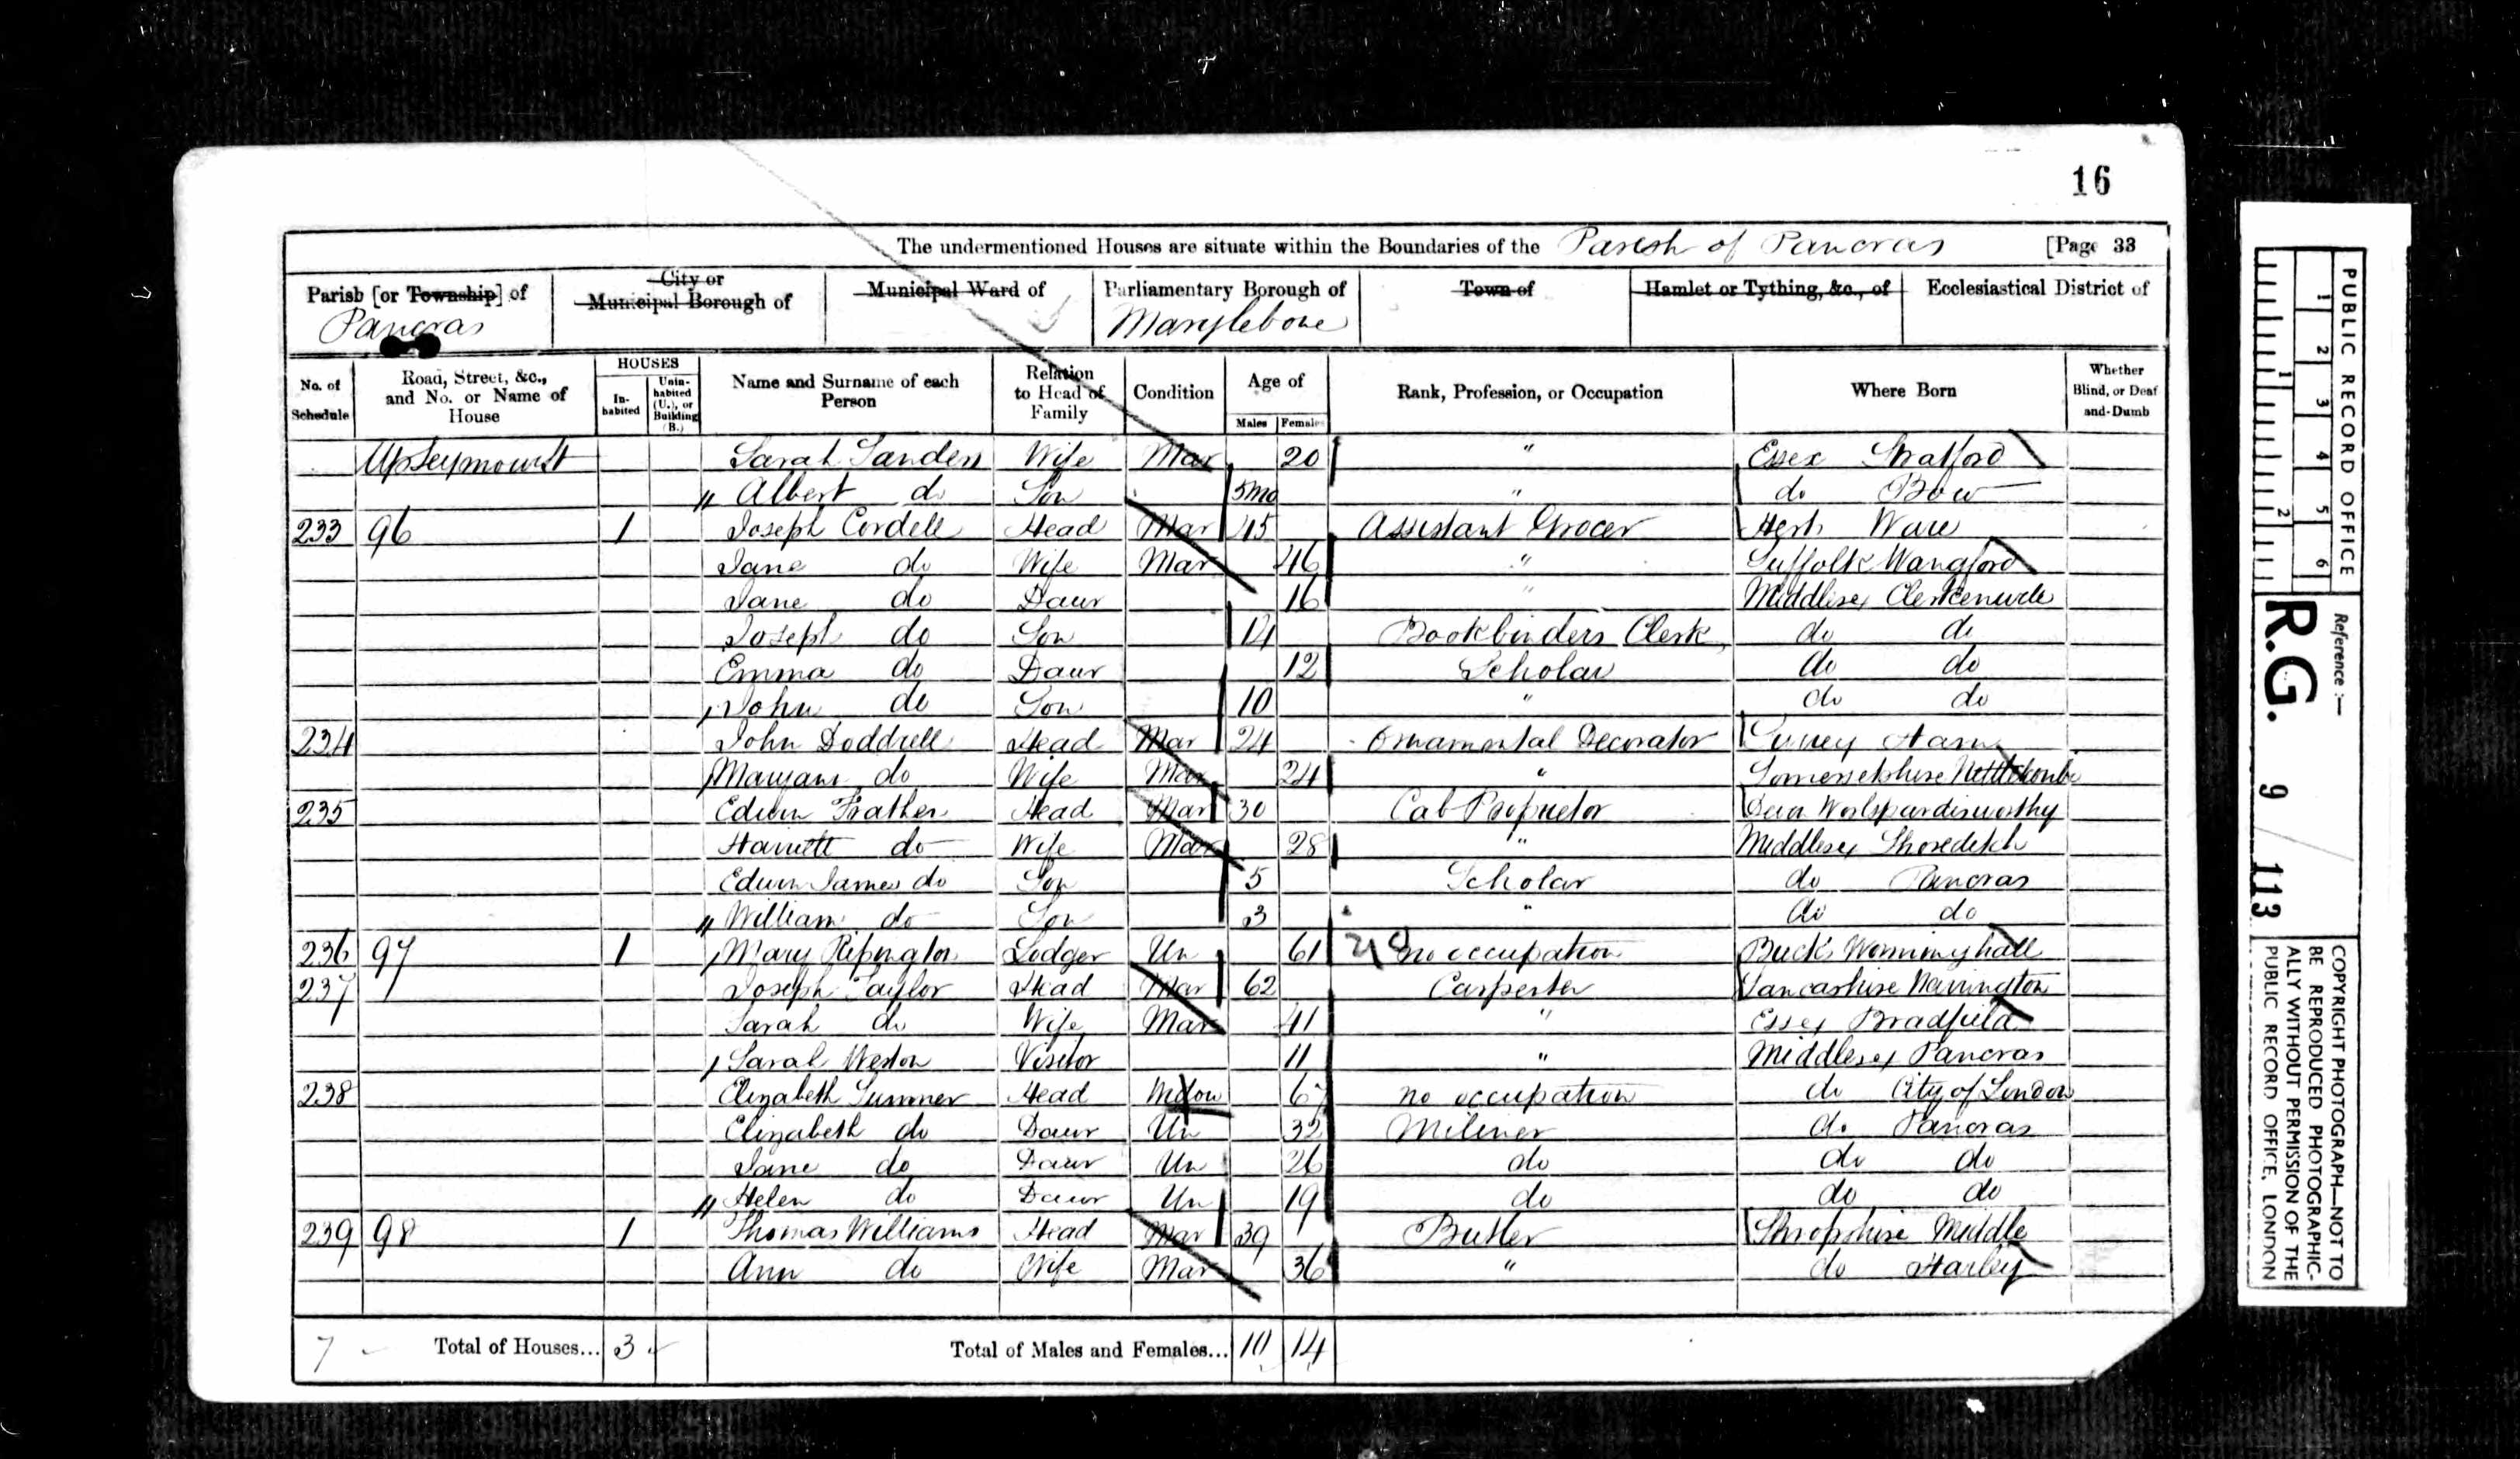 16
The undermentioned Houses are situate within the Boundaries of the Parish of Pancras [Page 33
Parish [or Township] of Pancras
City or Municipal Borough of
Municipal Ward of
Parliamentary Borough of Marylebone
Town of
Hamlet or Tything, &c., of
Ecclesiastical District of
No. of Schedule
Road, Street, &c., and No. or Name of House
HOUSES
In-habited
Unin-habited (U.), or Building (B.)
Name and Surname of each Person
Relation to Head of Family
Condition
Age of
Males
Females
Rank, Profession, or Occupation
Where Born
Whether Blind, or Deaf and-Dumb
Up Seymour St Sarah Sanders Wife Mar 20 " Essex Stratford
" Albert do Son 5mo " do Bow
233 96 1 Joseph Cordell Head Mar 45 Assistant Grocer Herts Ware
Jane do Wife Mar 46 " Suffolk Wangford
Jane do Daur 16 " Middlesex Clerkenwell
Joseph do Son 14 Bookbinders Clerk do do
Emma do Daur 12 Scholar do do
John do Son 10 " do do
234 John Doddrell Head Mar 24 Ornamental Decorator Surrey Ham
Maryann do Wife Mar 24 " Somersetshire Nettlecombe
235 Edwin Head Mar 30 Cab Proprietor
Harriett do Wife Mar 28 " Middlesex Shoreditch
Edwin James do Son 5 Scholar do Pancras
" William do Son 3 " do do
236 97 1 Mary Ripington Lodger Un 61 no occupation Bucks Worminghall
237 Joseph Taylor Head Mar 62 Carpenter Lancashire Warrington
Sarah do Wife Mar 41 " Essex Bradfield
Sarah Weston Visitor 11 " Middlesex Pancras
238 Elizabeth Sumner Head Widow 67 no occupation do City of London
Elizabeth do Daur Un 32 Miliner do Pancras
Jane do Daur Un 26 do do do
" Helen do Daur Un 19 do do do
239 98 1 Thomas Williams Head Mar 39 Butler Shropshire Middle
Ann do Wife Mar 36 " do Harley
7 Total of Houses... 3 Total of Males and Females... 10 14
PUBLIC RECORD OFFICE
1 2 3 4 5 6
1 2
Reference :—
R.G. 9 / 113
COPYRIGHT PHOTOGRAPH—NOT TO
BE REPRODUCED PHOTOGRAPHIC-
ALLY WITHOUT PERMISSION OF THE
PUBLIC RECORD OFFICE, LONDON